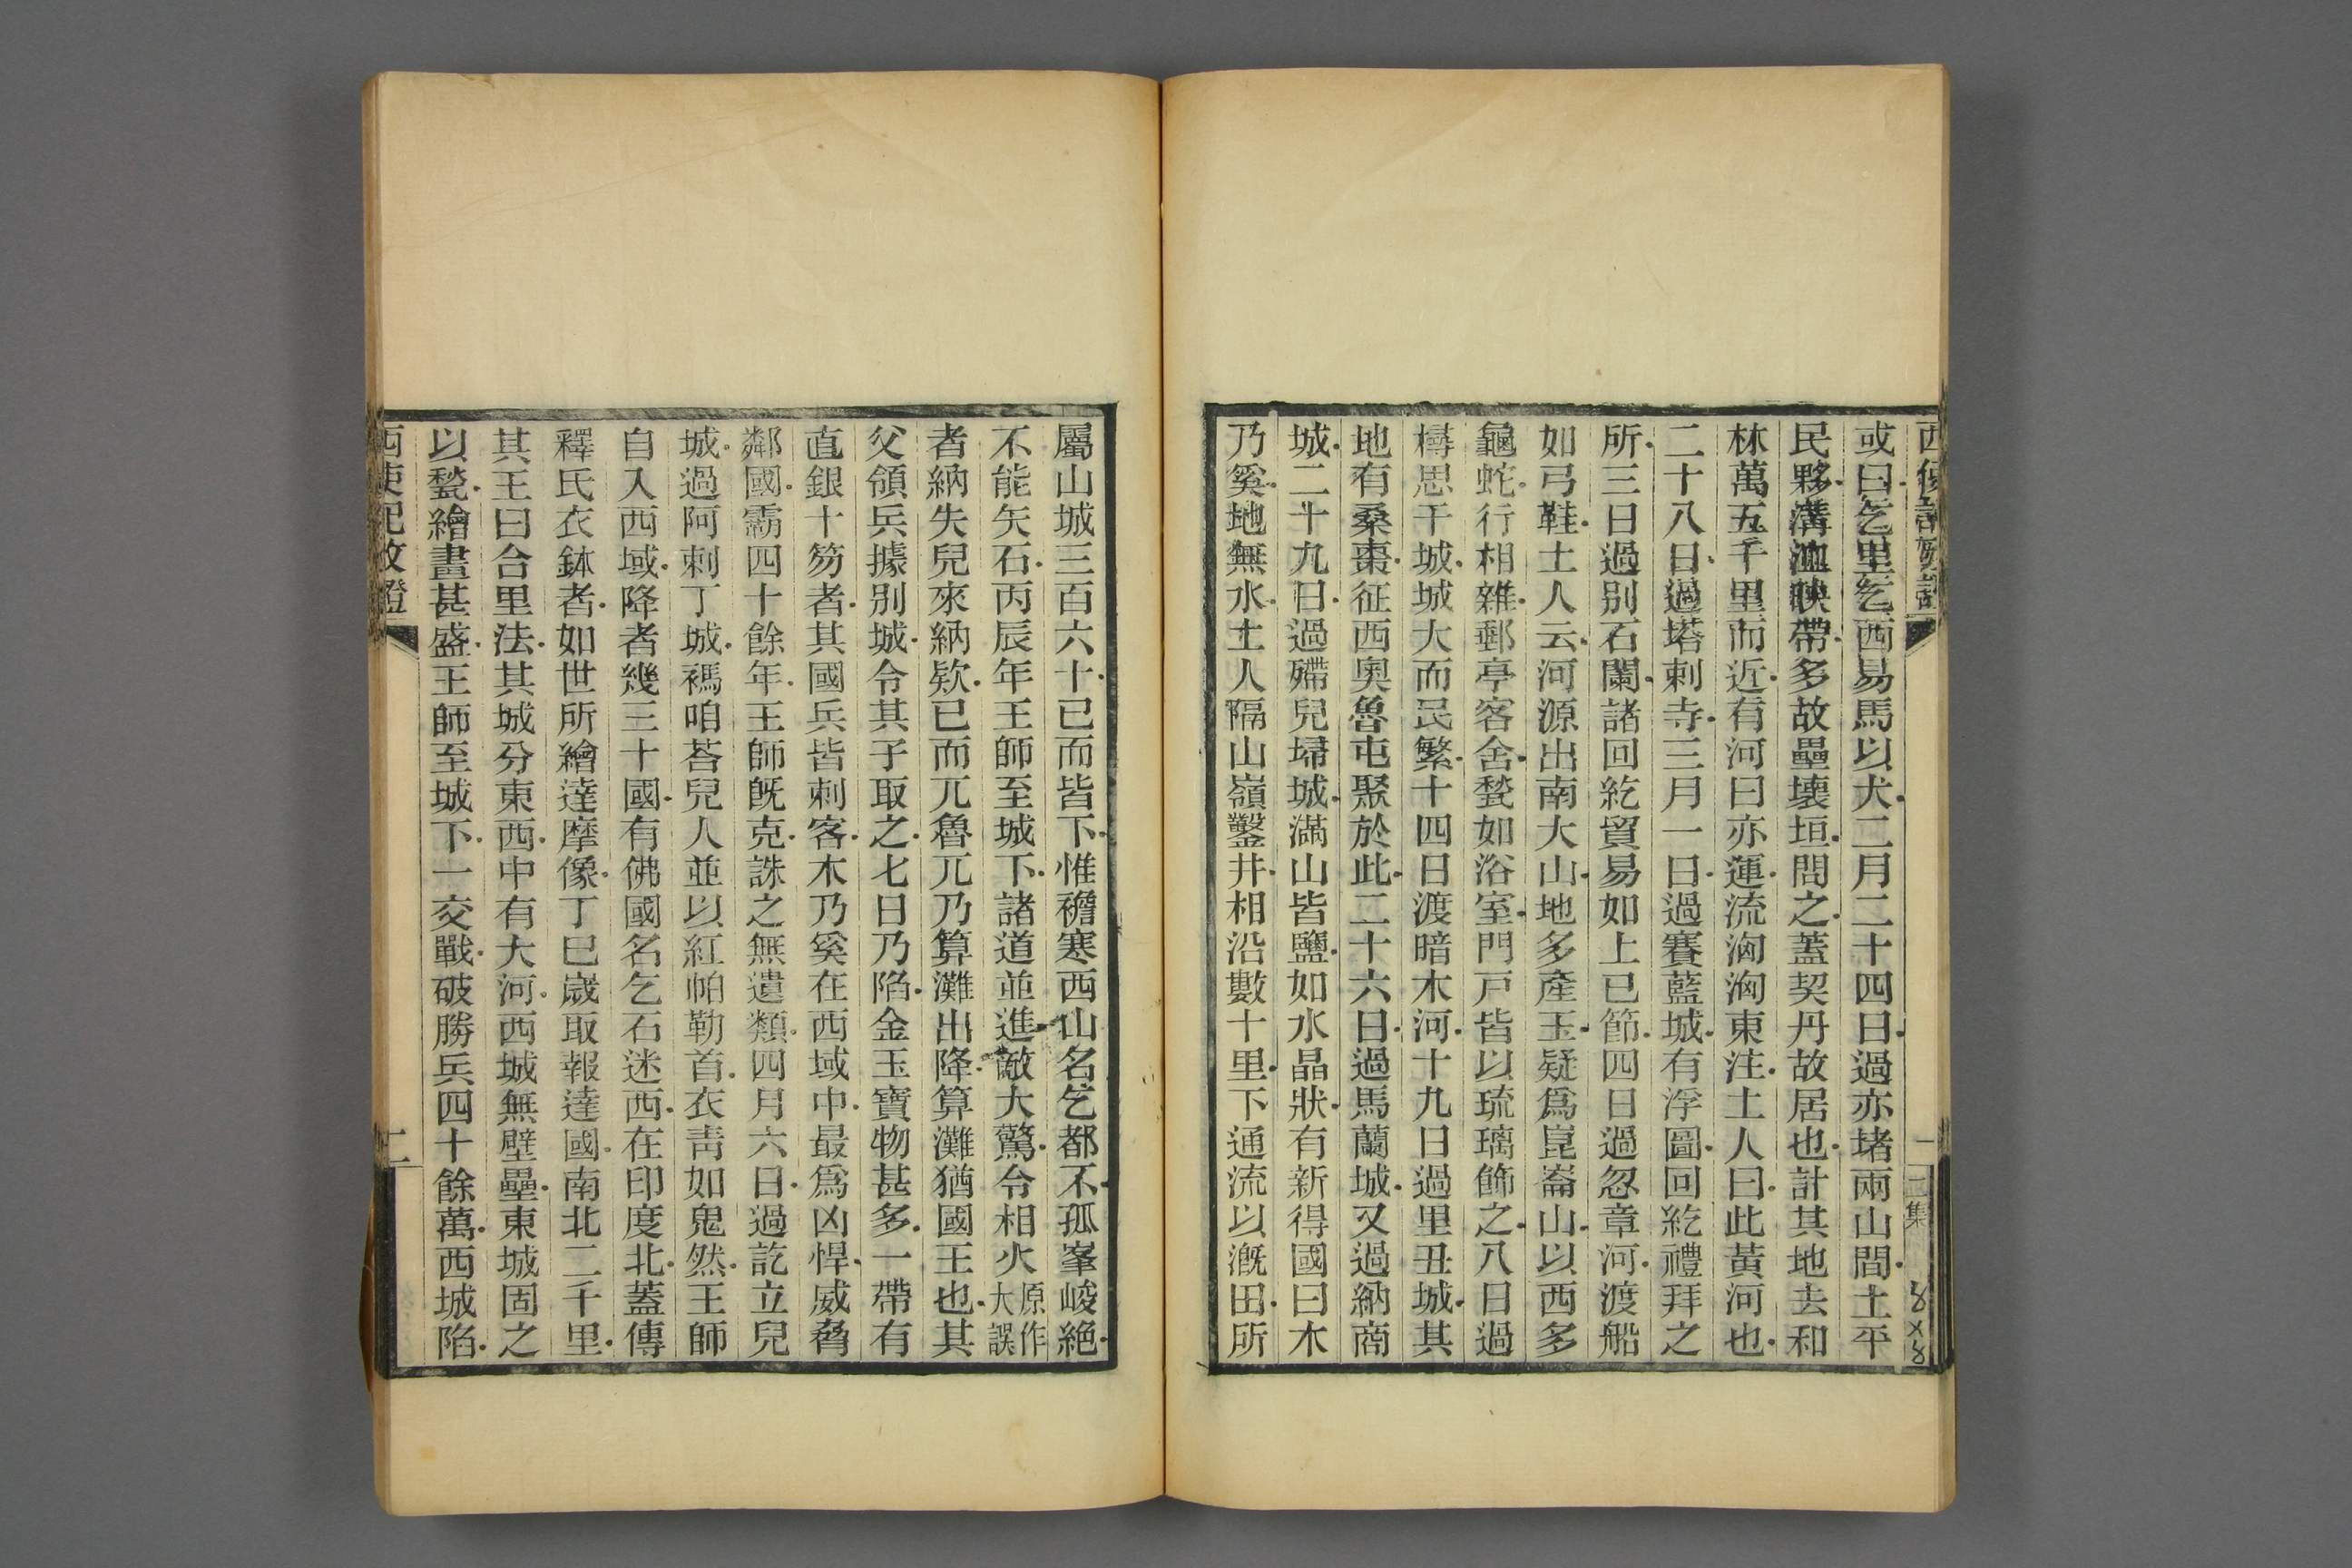 或曰乞里乞西易馬以犬二月二十四日過亦堵兩山間土平
民夥溝洫映帶多故壘壞垣問之蓋契丹故居也計其地去和
林萬五千里而近有河曰亦運流洶洶東注土人曰此黃河也
二十八日過塔剌寺三月一日過賽藍城有浮圖回紇禮拜之
所三日過別石蘭諸回紇貿易如上巳節四日過忽章河渡船
如弓鞋土人云河源出南大山地多產玉疑爲崑崙山以西多
龜蛇行相雜郵亭客舍甃如浴室門戸皆以琉璃飾之八日過
橏思干城城大而民繁十四日渡暗木河十九日過里丑城其
地有桑棗征西奧魯屯聚於此二十六日過馬蘭城又過納商
城二十九日過殢兒埽城滿山皆鹽如水晶狀有新得國曰木
乃奚地無水土人隔山嶺鑿井相沿數十里下通流以漑田所
屬山城三百六十已而皆下惟襜寒西山名乞都不孤峯峻絕
不能矢石丙辰年王師至城下諸道並進敵大驚令相火原作大誤
者納失兒來納欵已而兀魯兀乃算灘出降算灘猶國王也其
父領兵據別城令其子取之七日乃陷金玉寶物甚多一帶有
直銀十笏者其國兵皆刺客木乃奚在西域中最爲凶悍威脅
鄰國霸四十餘年王師旣克誅之無遺類四月六日過訖立兒
城過阿剌丁城禡咱苔兒人並以紅帕勒首衣靑如鬼然王師
自入西域降者幾三十國有佛國名乞石迷西在印度北蓋傳
釋氏衣鉢者如世所繪達摩像丁巳歲取報達國南北二千里
其王曰合里法其城分東西中有大河西城無壁壘東城固之
以甃繪畫甚盛王師至城下一交戰破勝兵四十餘萬西城陷
西使記攷證
二